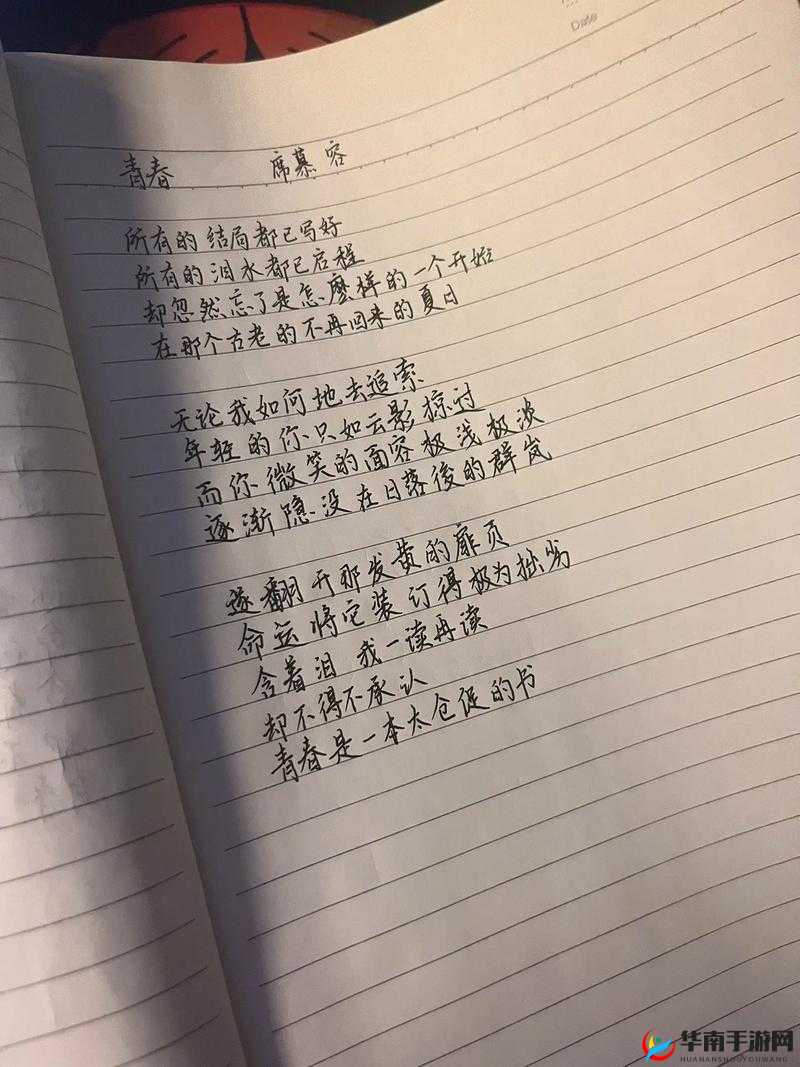 Date
青春 席慕容
所有的结局都已写好
所有的泪水都已启程
却忽然忘了是怎麼样的一个开始
在那个古老的不再回来的夏日
无论我如何地去追索
年轻的你只如云影掠过
而你微笑的面容极浅极淡
逐渐隐没在日落後的群岚
遂翻开那发黄的扉页
命运将它装订得极为拙劣
含着泪 我一读再读
却不得不承认
青春是一本太仓促的书
华南手游网
HUANANSHOUYOUWANG